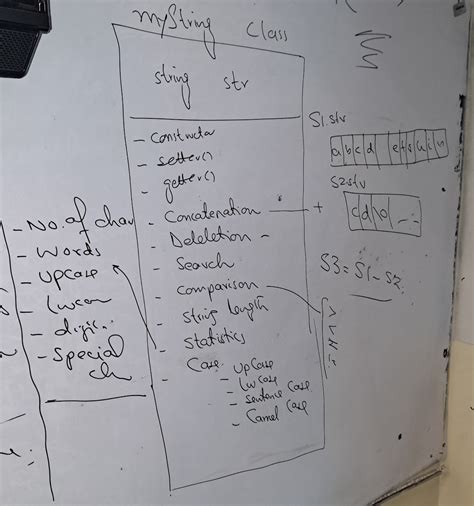 myString Class
string str
- Constructor
- setter()
- getter()
- Concatenation +
- Deletion -
- Search
- Comparison
- String length
- Statistics
- Case
- UpCase
- LwCase
- Sentence Case
- Camel Case
- No. of char
- words
- upcase
- lwcase
- digit
- Special ch
S1.str
a b c d e f g h i n
S2.str
c d
S3 = S1 - S2